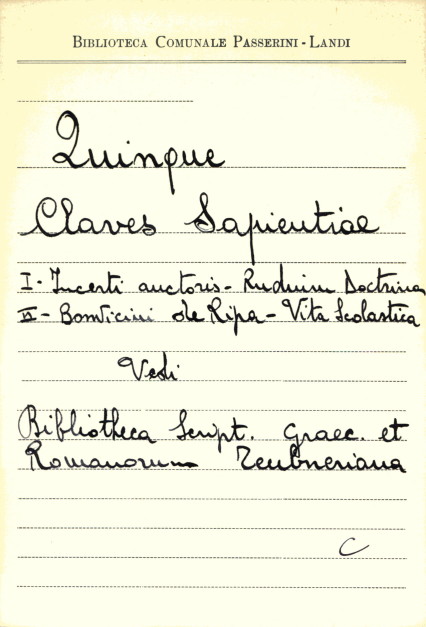 BIBLIOTECA COMUNALE PASSERINI - LANDI
Quinque
Claves Sapientiae
I - Incerti auctoris - Rudium Doctrina
II - Bonvicini de Ripa - Vita Scolastica
Vedi
Bibliotheca Script. Graec. et
Romanorum Teubneriana
C